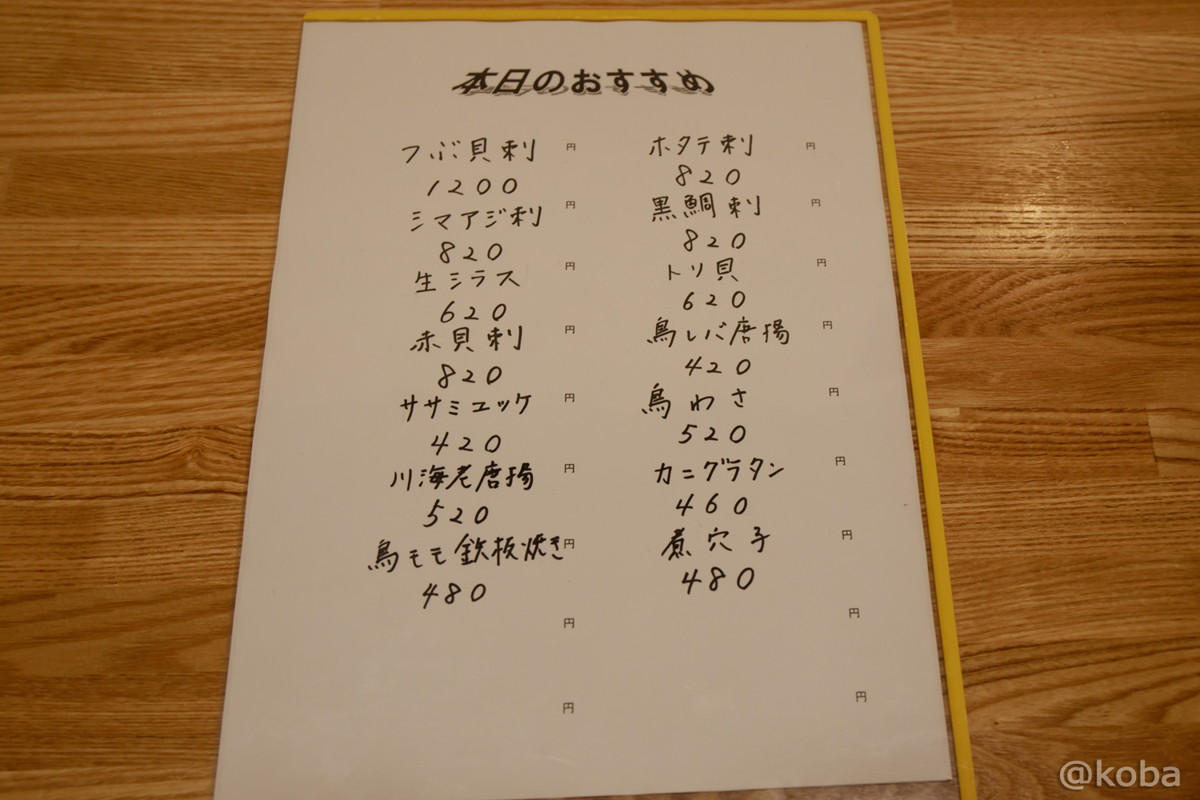 本日のおすすめ
つぶ貝刺 円
1200
シマアジ刺 円
820
生シラス 円
620
赤貝刺 円
820
ササミユッケ 円
420
川海老唐揚 円
520
鳥モモ鉄板焼き 円
480
円
円
ホタテ刺 円
820
黒鯛刺 円
820
トリ貝 円
620
鳥レバ唐揚 円
420
鳥わさ 円
520
カニグラタン 円
460
煮穴子 円
480
円
円
@koba